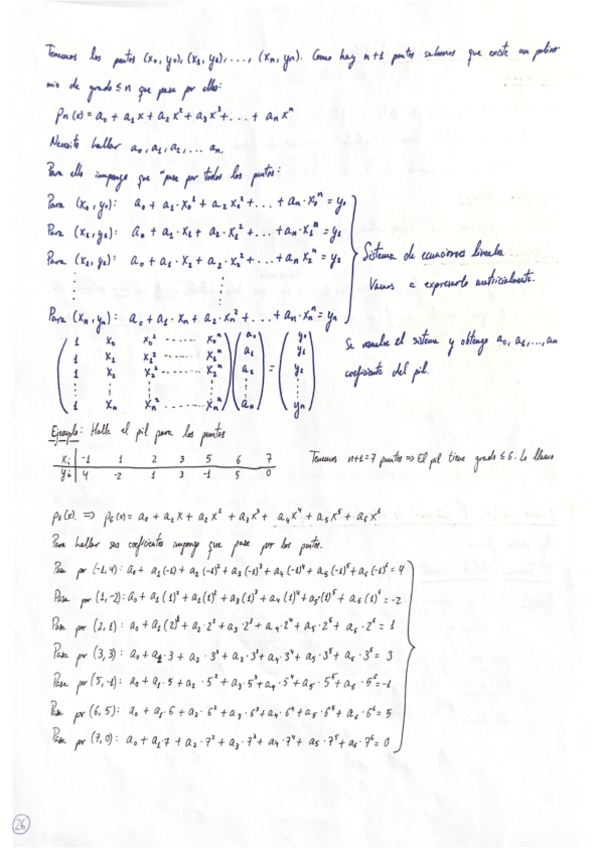 Tenemos los puntos (x₀, y₀), (x₁, y₁), ..., (xₙ, yₙ). Como hay n+1 puntos sabemos que existe un polino
mio de grado ≤ n que pasa por ellos:
Pₙ(x) = a₀ + a₁x + a₂x² + a₃x³ + ... + aₙxⁿ
Necesito hallar a₀, a₁, a₂, ... aₙ.
Para ello impongo que "pase por todos los puntos:
Para (x₀, y₀): a₀ + a₁·x₀ + a₂x₀² + ... + aₙ·x₀ⁿ = y₀
Para (x₁, y₁): a₀ + a₁·x₁ + a₂·x₁² + ... + aₙ·x₁ⁿ = y₁
Para (x₂, y₂): a₀ + a₁·x₂ + a₂·x₂² + ... + aₙx₂ⁿ = y₂
Sistema de ecuaciones lineales
Vamos a expresarlo matricialmente.
Para (xₙ, yₙ): a₀ + a₁·xₙ + a₂·xₙ² + ... + aₙ·xₙⁿ = yₙ
1 x₀ x₀² ...... x₀ⁿ a₀ y₀
1 x₁ x₁² ...... x₁ⁿ a₁ y₁
1 x₂ x₂² ...... x₂ⁿ a₂ = y₂
1 xₙ xₙ² ...... xₙⁿ aₙ yₙ
Se resuelve el sistema y obtengo a₀, a₁, ..., aₙ
coeficiente del pil.
Ejemplo: Halla el pil para los puntos
xᵢ -1 1 2 3 5 6 7
yᵢ 4 -2 1 3 -1 5 0
Tenemos n+1=7 puntos ⇒ El pil tiene grado ≤ 6. Lo llamo
p₆(x). ⇒ p₆(x) = a₀ + a₁x + a₂x² + a₃x³ + a₄x⁴ + a₅x⁵ + a₆x⁶
Para hallar sus coeficientes impongo que pase por los puntos.
Pasa por (-1,4): a₀ + a₁(-1) + a₂(-1)² + a₃(-1)³ + a₄(-1)⁴ + a₅(-1)⁵ + a₆(-1)⁶ = 4
Pasa por (1,-2): a₀ + a₁(1) + a₂(1)² + a₃(1)³ + a₄(1)⁴ + a₅(1)⁵ + a₆(1)⁶ = -2
Pasa por (2,1): a₀ + a₁(2) + a₂·2² + a₃·2³ + a₄·2⁴ + a₅·2⁵ + a₆·2⁶ = 1
Pasa por (3,3): a₀ + a₁·3 + a₂·3² + a₃·3³ + a₄·3⁴ + a₅·3⁵ + a₆·3⁶ = 3
Pasa por (5,-1): a₀ + a₁·5 + a₂·5² + a₃·5³ + a₄·5⁴ + a₅·5⁵ + a₆·5⁶ = -1
Pasa por (6,5): a₀ + a₁·6 + a₂·6² + a₃·6³ + a₄·6⁴ + a₅·6⁵ + a₆·6⁶ = 5
Pasa por (7,0): a₀ + a₁·7 + a₂·7² + a₃·7³ + a₄·7⁴ + a₅·7⁵ + a₆·7⁶ = 0
26